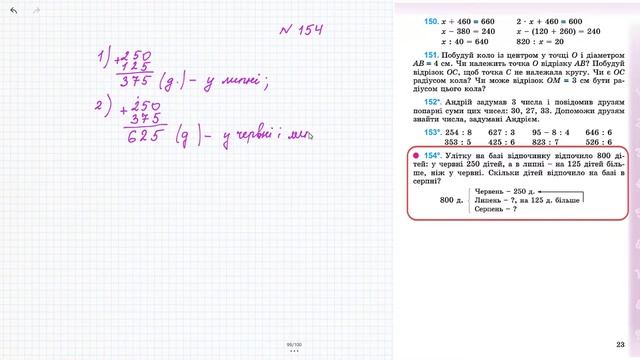 N 154
1) + 250
125
375 (д.) – у липні;
2) + 250
375
625 (д) – у червні і
150. x + 460 = 660 2 · x + 460 = 600
x – 380 = 240 x – (120 + 260) = 240
x : 40 = 640 820 : x = 20
151. Побудуй коло із центром у точці O і діаметром
AB = 4 см. Чи належить точка O відрізку AB? Побудуй
відрізок OC, щоб точка C не належала кругу. Чи є OC
радіусом кола? Чи може відрізок OM = 3 см бути ра-
діусом цього кола?
152*. Андрій задумав 3 числа і повідомив друзям
попарні суми цих чисел: 30, 27, 33. Допоможи друзям
знайти числа, задумані Андрієм.
153°. 254 : 8 627 : 3 95 – 8 : 4 646 : 6
353 : 5 425 : 6 823 : 7 526 : 6
154°. Улітку на базі відпочинку відпочило 800 ді-
тей: у червні 250 дітей, а в липні – на 125 дітей біль-
ше, ніж у червні. Скільки дітей відпочило на базі в
серпні?
Червень – 250 д.
800 д. Липень – ?, на 125 д. більше
Серпень – ?
99/100
23